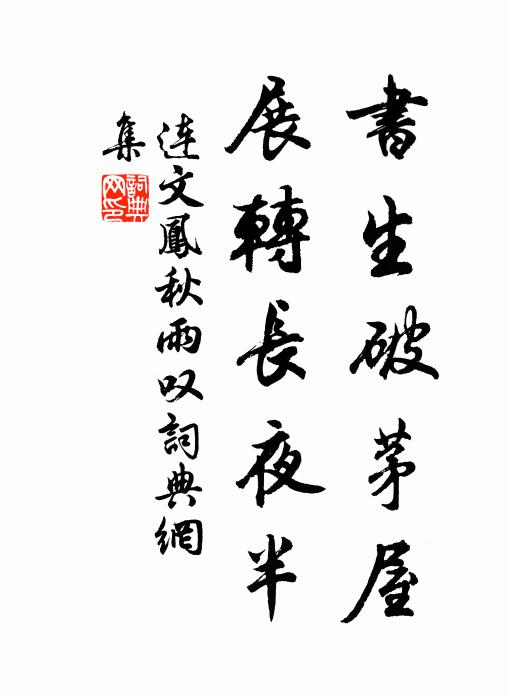 書生破茅屋
展轉長夜半
連文鳳秋雨叹詞典網
集
詞典網印